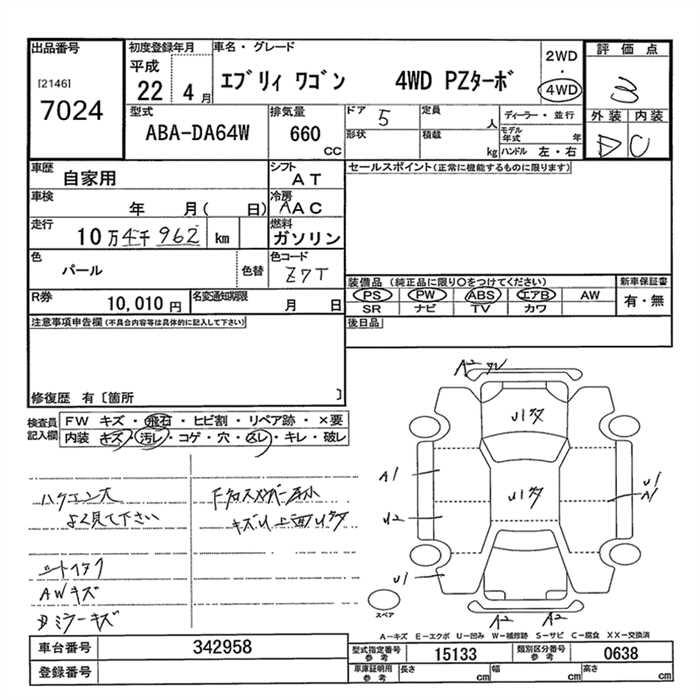 出品番号
[2146]
7024
初度登録年月
平成
22 4月
車名・グレード
エブリィ ワゴン 4WD PZターボ
2WD
・
4WD
評価点
3
外装 内装
D C
型式
ABA-DA64W
排気量
660
CC
ドア 5
形状
定員
人
積載
kg
ディーラー・並行
モデル年式 年
ハンドル 左・右
車歴
自家用
シフト
AT
車検
年 月( 日)
冷房
AAC
走行
10万4千962 km
燃料
ガソリン
色
パール
色替
色コード
Z7T
R券
10,010円
名変通知期限
月 日
セールスポイント(正常に機能するものに限ります)
装備品(純正品に限り○をつけてください)
PS PW ABS エアB AW
SR ナビ TV カワ
新車保証書
有・無
後日品
注意事項申告欄(不具合内容等は具体的に記入して下さい)
修復歴 有〔箇所 〕
検査員記入欄
FW キズ・飛石・ヒビ割・リペア跡・×要
内装 キズ・汚レ・コゲ・穴・スレ・キレ・破レ
よく見て下さい
キズU 上面Uタ
シートイタミ
AWキズ
ミラーキズ
A2
U1タ
U1タ
A1
U2
U1
U1
A1
A2 A2
スペア
A-キズ E-エクボ U-凹み W-補修跡 S-サビ C-腐食 XX-交換済
車台番号
342958
登録番号
型式指定番号
参考
15133
類別区分番号
参考
0638
車庫証明用
参考
長さ cm 幅 cm 高さ cm